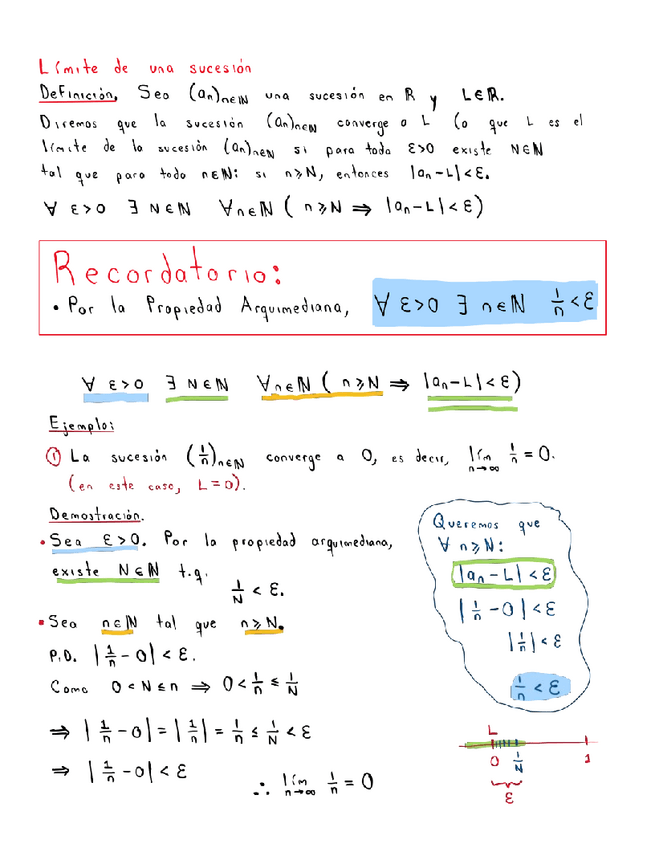 Límite de una sucesión
Definición. Sea (aₙ)ₙ∈ℕ una sucesión en ℝ y L∈ℝ.
Diremos que la sucesión (aₙ)ₙ∈ℕ converge a L (o que L es el
límite de la sucesión (aₙ)ₙ∈ℕ si para todo ε>0 existe N∈ℕ
tal que para todo n∈ℕ: si n≥N, entonces |aₙ-L|<ε.
∀ ε>0 ∃ N∈ℕ ∀n∈ℕ ( n≥N ⇒ |aₙ-L|<ε)
Recordatorio:
• Por la Propiedad Arquimediana, ∀ ε>0 ∃ n∈ℕ 1/n<ε
∀ ε>0 ∃ N∈ℕ ∀n∈ℕ ( n≥N ⇒ |aₙ-L|<ε)
Ejemplo:
① La sucesión (1/n)ₙ∈ℕ converge a 0, es decir, lím n→∞ 1/n = 0.
(en este caso, L=0).
Demostración.
• Sea ε>0. Por la propiedad arquimediana,
existe N∈ℕ t.q.
1/N < ε.
• Sea n∈ℕ tal que n≥N.
P.D. |1/n - 0| < ε.
Como 0<N≤n ⇒ 0<1/n ≤ 1/N
⇒ |1/n - 0| = |1/n| = 1/n ≤ 1/N < ε
⇒ |1/n - 0| < ε
∴ lím n→∞ 1/n = 0
Queremos que
∀ n≥N:
|aₙ-L|<ε
|1/n - 0| < ε
|1/n| < ε
1/n < ε
L
0 1/N 1
ε